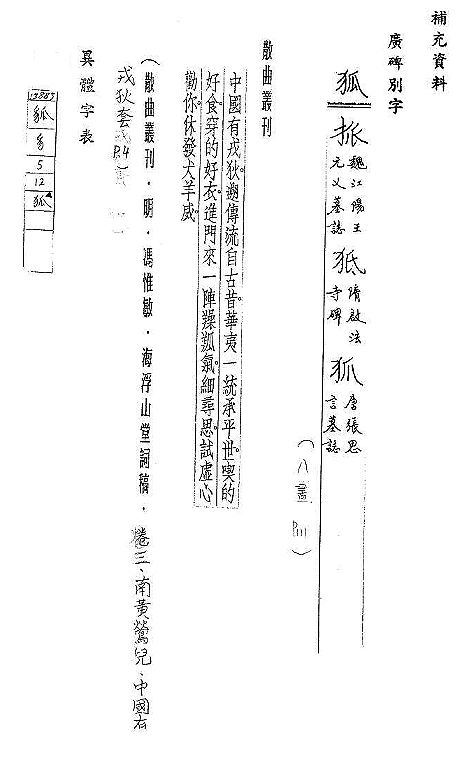 補充資料
廣碑別字
狐 𢪎 魏江陽王元乂墓誌 狐 隋啟法寺碑 狐 唐張思言墓誌
(八畫 P111)
散曲叢刊
中國有戎狄遡傳流自古昔華夷一統承平世喫的
好食穿的好衣進門來一陣臊羝氣細尋思試虛心
勸你休發犬羊威
(散曲叢刊.明.馮惟敏.海浮山堂詞稿.卷三、南黃鶯兒、中國有
戎狄套 P.4)
異體字表
狐
豸
5
12
狐